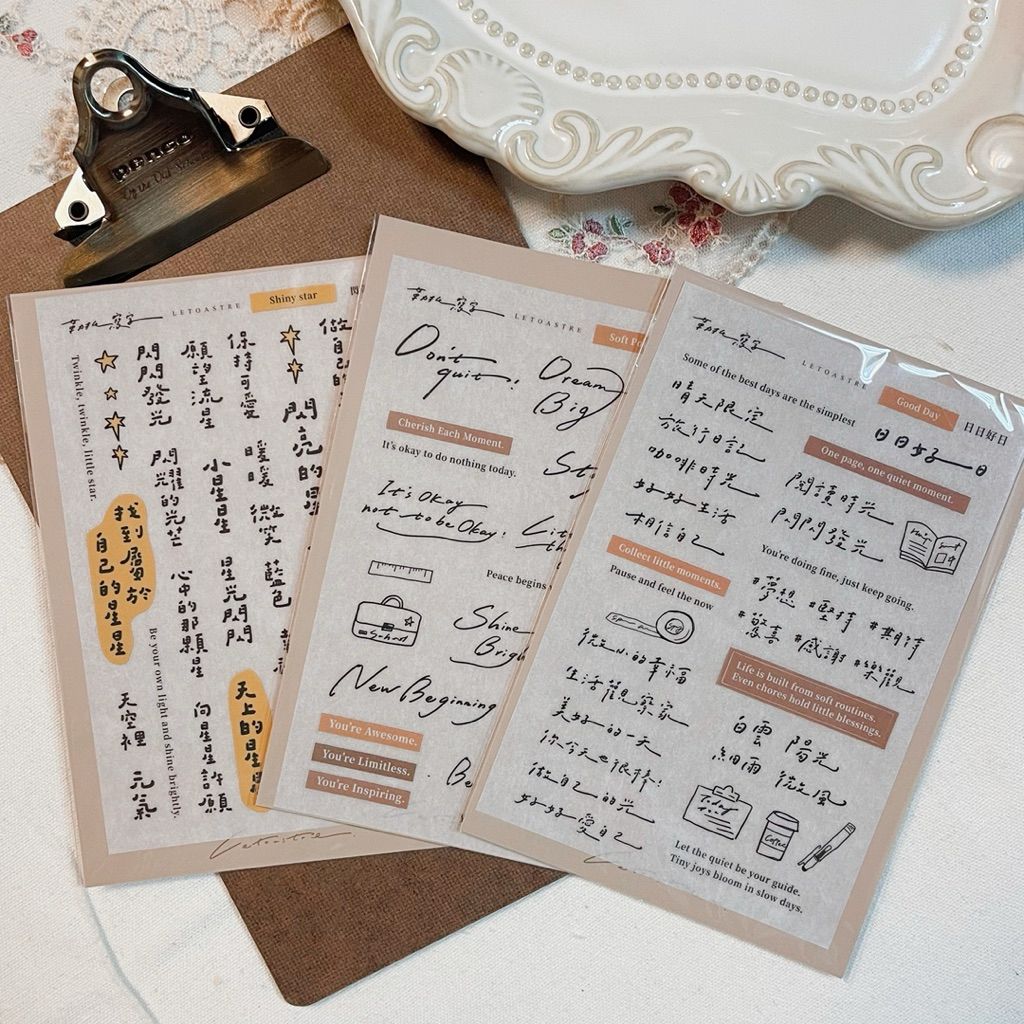 penco
LETOASTRE
Shiny star
Twinkle, twinkle, little star.
閃閃發光
願望流星
保持可愛
做自己的
閃亮的星
暖暖
微笑
藍色
閃耀的光芒
小星星
找到屬於
自己的星星
心中的那顆星
星光閃閃
Be your own light and shine brightly.
天空裡
元氣
向星星許願
天上的星星
Letoastre
LETOASTRE
Don't
quit!
Dream
Big
Cherish Each Moment.
It's okay to do nothing today.
It's Okay
not to be Okay!
Peace begins
School
Shine
New Beginning
You're Awesome.
You're Limitless.
You're Inspiring.
LETOASTRE
Good Day
日日好日
Some of the best days are the simplest
日日好日
晴天限定
旅行日記
咖啡時光
好好生活
相信自己
One page, one quiet moment.
閱讀時光
閃閃發光
You're doing fine, just keep going.
Collect little moments.
Pause and feel the now
#夢想 #堅持 #期待
#驚喜 #感謝 #樂觀
微小的幸福
生活觀察家
美好的一天
你今天也很棒!
做自己的光
好好愛自己
Life is built from soft routines.
Even chores hold little blessings.
白雲 陽光
細雨 微風
Today
Coffee
Let the quiet be your guide.
Tiny joys bloom in slow days.